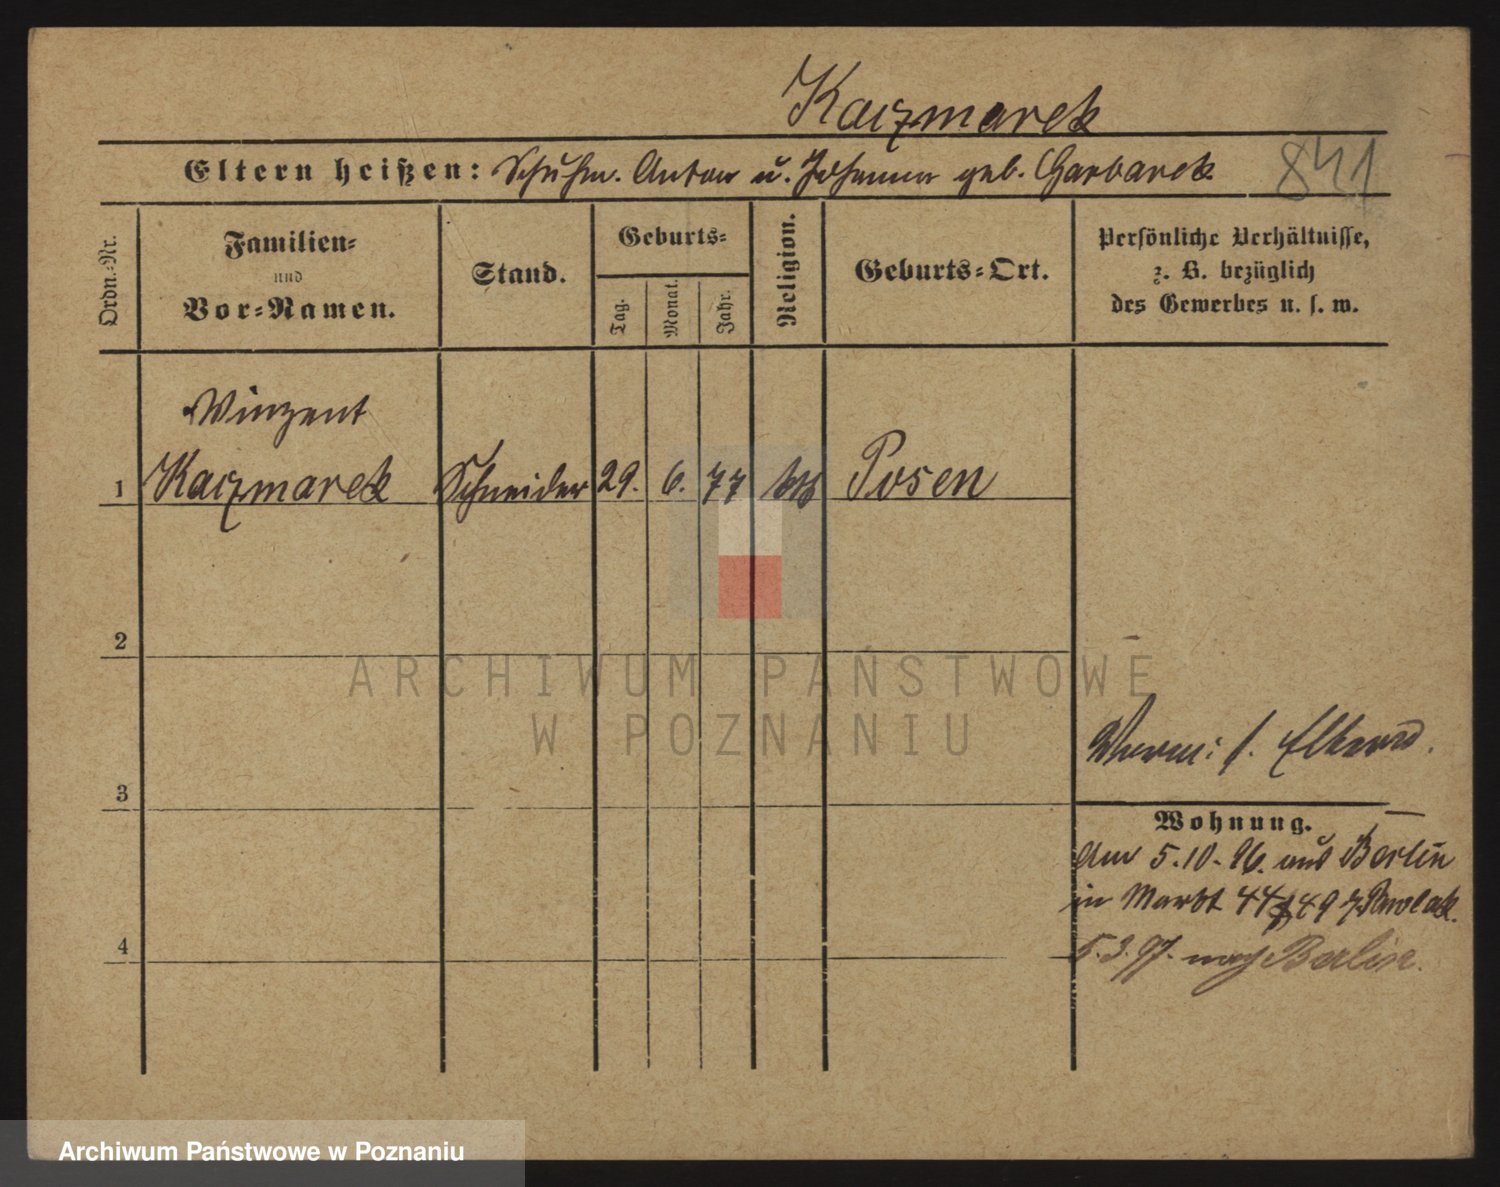 Kaczmarek
Eltern heißen: Schuhm. Anton u. Johanna geb. Garbarek
841
Ordn.-Nr.
Familien-
und
Vor-Namen.
Stand.
Geburts-
Tag.
Monat.
Jahr.
Religion.
Geburts-Ort.
Persönliche Verhältnisse,
z. B. bezüglich
des Gewerbes u. s. w.
Winzent
1 Kaczmarek Schneider 29. 6. 77 Posen
2
ARCHIWUM PAŃSTWOWE
W POZNANIU
3
Wohnung.
Am 5.10.96. aus Berlin
in Markt 44 49 Pawlak.
4
5.3.97. nach Berlin.
Archiwum Państwowe w Poznaniu